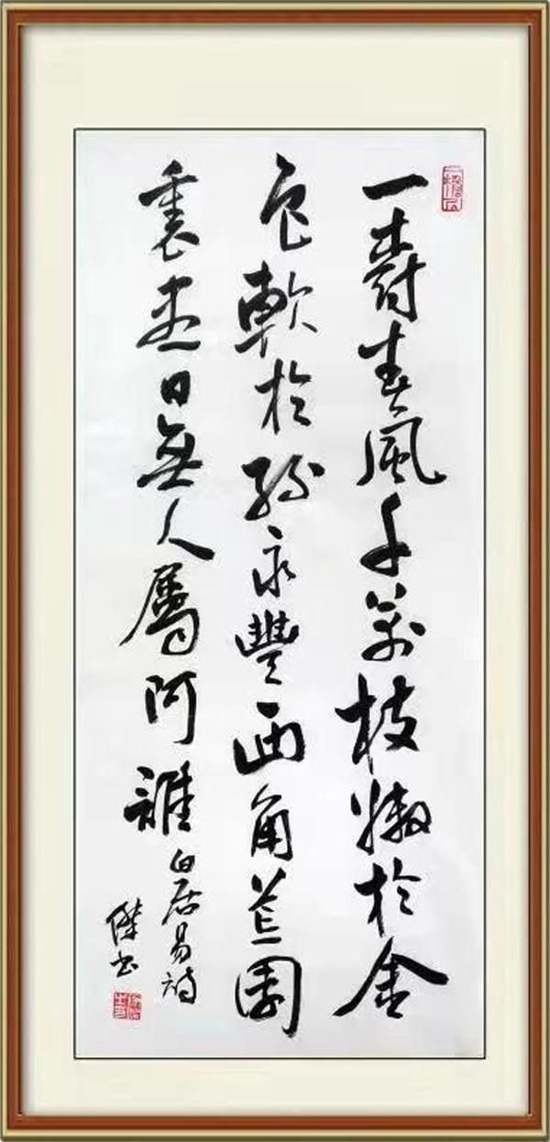 一樹春風千萬枝嫩於金
色軟於絲永豐西角荒園
裏盡日無人屬阿誰 白居易詩
傑书